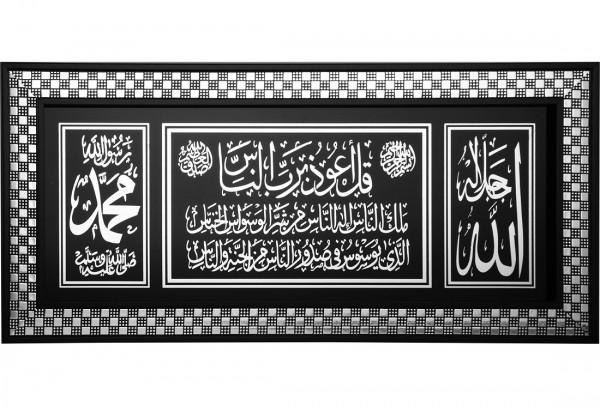 جل جلاله
الله
قل أعوذ برب الناس
ملك الناس إله الناس من شر الوسواس الخناس
الذي يوسوس في صدور الناس من الجنة والناس
صدق الله العظيم
رسول الله
محمد
صلى الله عليه وسلم